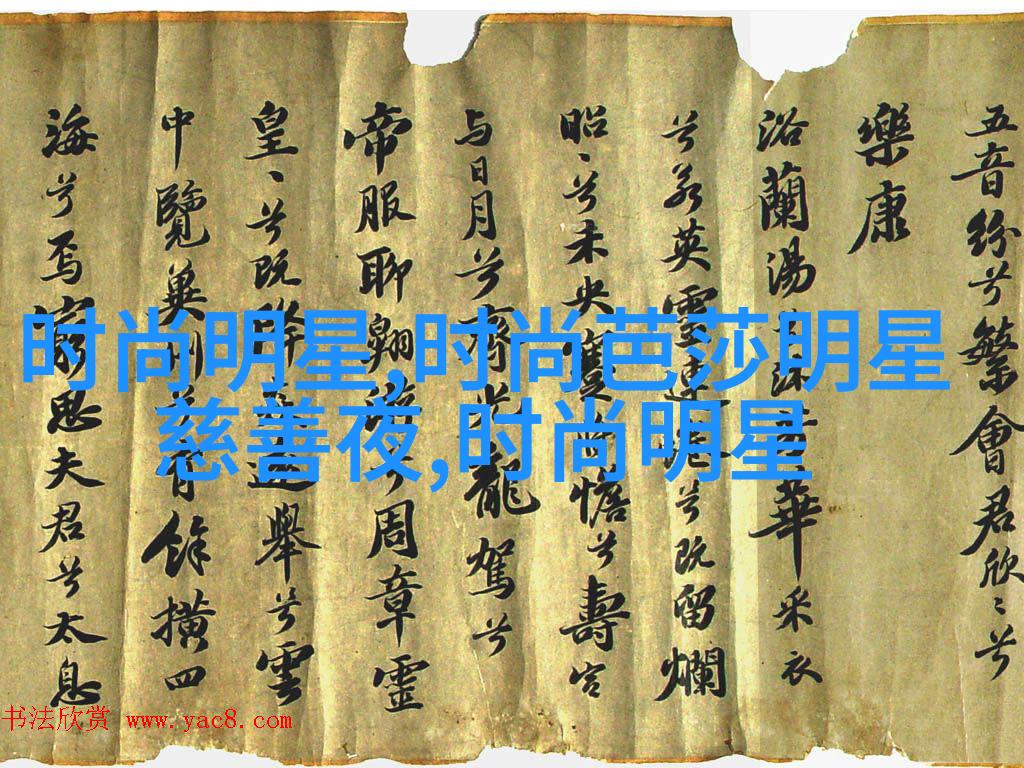 五音紛兮繁會君欣〻兮
樂康
浴蘭湯兮沐芳華采衣
兮若英靈連蜷兮既留爛
昭〻兮未央蹇將憺兮壽宮
与日月兮齊光龍駕兮
帝服聊翱游兮周章靈
皇〻兮既降猋遠舉兮雲
中覽冀州兮有餘橫四
海兮焉窮思夫君兮太息
时尚明星,时尚芭莎明星
慈善夜,时尚明星
书法欣赏 www.yac8.com